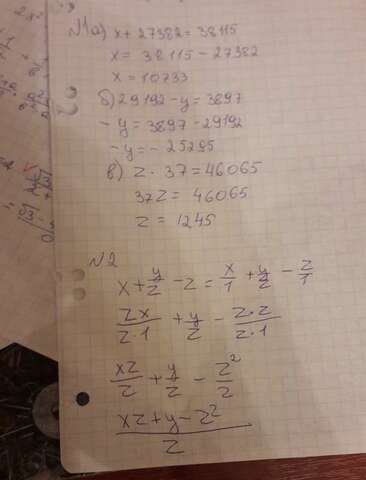 №1 а) x + 27382 = 38115
x = 38115 - 27382
x = 10733
б) 29192 - y = 3897
- y = 3897 - 29192
- y = - 25295
в) z · 37 = 46065
37z = 46065
z = 1245
№2
x + y/z - z = x/1 + y/z - z/1
zx/z·1 + y/z - z·z/z·1
xz/z + y/z - z²/z
xz + y - z²/z